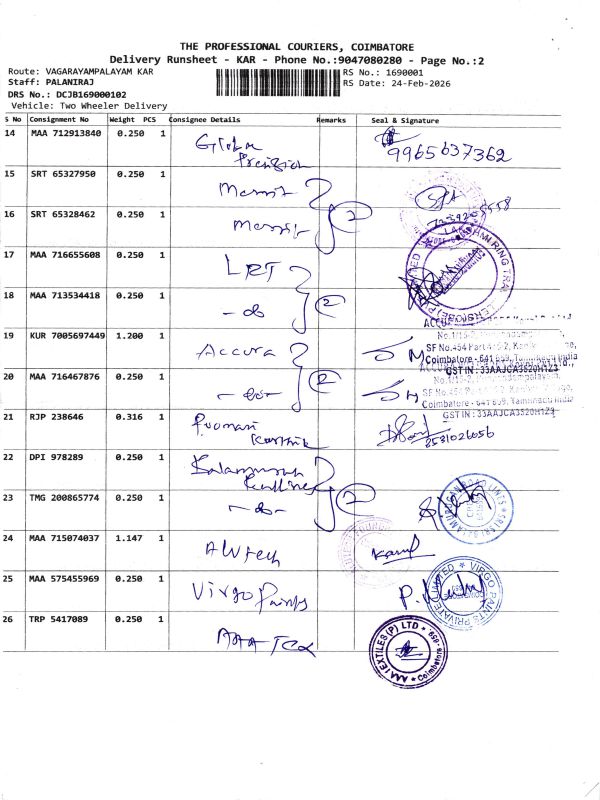 THE PROFESSIONAL COURIERS, COIMBATORE
Delivery Runsheet - KAR - Phone No.:9047080280 - Page No.:2
Route: VAGARAYAMPALAYAM KAR RS No.: 1690001
Staff: PALANIRAJ RS Date: 24-Feb-2026
DRS No.: DCJB169000102
Vehicle: Two Wheeler Delivery
S No Consignment No Weight PCS Consignee Details Remarks Seal & Signature
14 MAA 712913840 0.250 1 Global Precision 9965637362
15 SRT 65327950 0.250 1
16 SRT 65328462 0.250 1 2
17 MAA 716655608 0.250 1 LRT
18 MAA 713534418 0.250 1 -do- 2
19 KUR 7005697449 1.200 1 Accura
SF No.454 Part
Coimbatore - 641 659, Tamilnadu India
GST IN : 33AAJCA3520H1Z3
20 MAA 716467876 0.250 1 -do- 2
Coimbatore - 641 659, Tamilnadu India
GST IN : 33AAJCA3520H1Z3
21 RJP 238646 0.316 1 Poomari Karthik 8531026056
22 DPI 978289 0.250 1
23 TMG 200865774 0.250 1 -do- 2
24 MAA 715074037 1.147 1 AWtech
25 MAA 575455969 0.250 1 Virgo Paints VIRGO PAINTS PRIVATE LIMITED
26 TRP 5417089 0.250 1 AAA Tex AAA TEXTILES (P) LTD Coimbatore-659